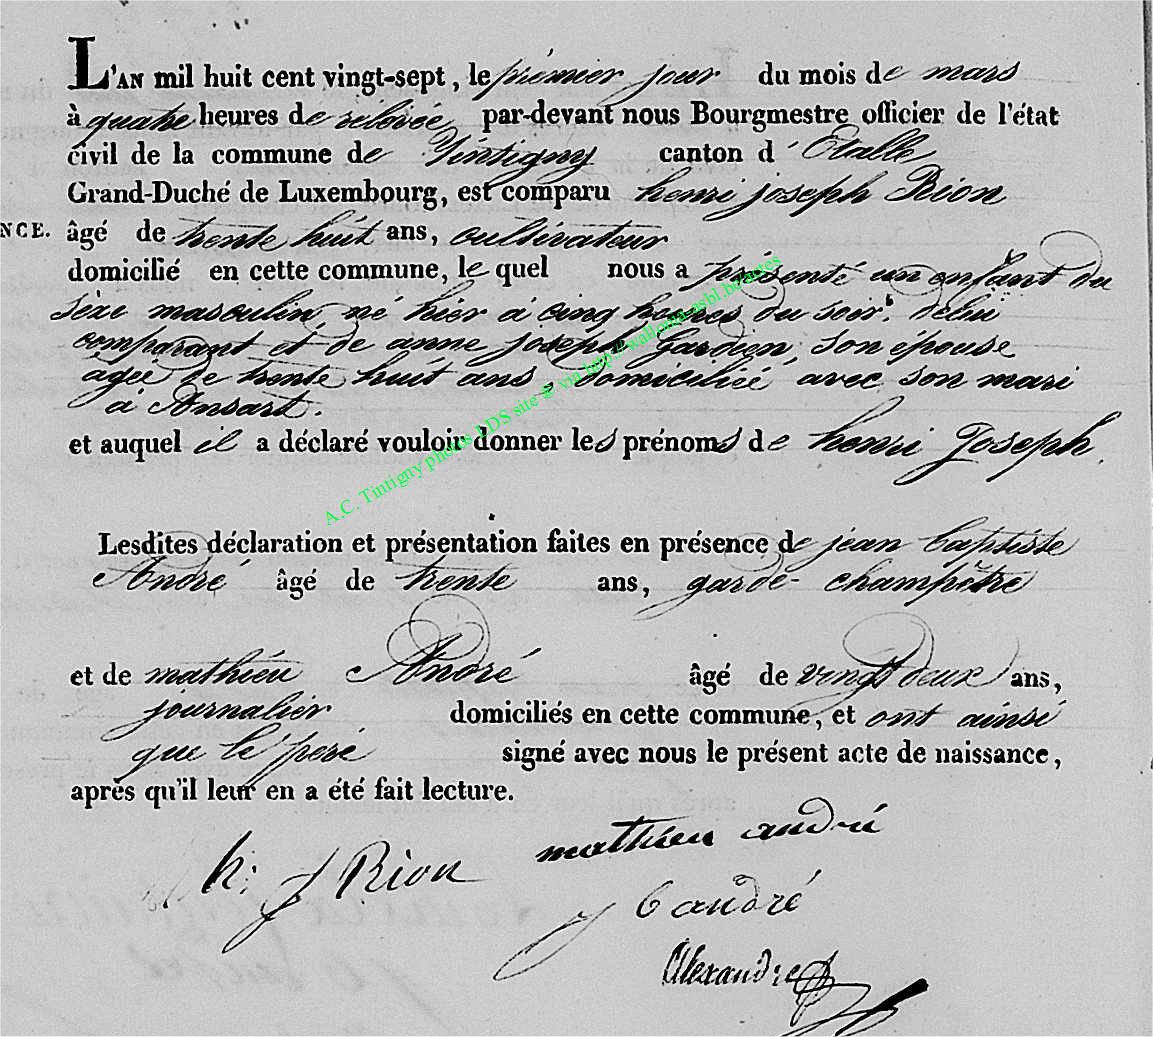 L'AN mil huit cent vingt-sept, le premier jour du mois de mars
à quatre heures de relevée par-devant nous Bourgmestre officier de l'état
civil de la commune de Tintigny canton d'Etalle
Grand-Duché de Luxembourg, est comparu henri joseph Rion
NCE. âgé de trente huit ans, cultivateur
domicilié en cette commune, lequel nous a présenté un enfant du
sèxe masculin, né hier à cinq heures du soir, delui
comparant et de anne joseph Gardien, son épouse
âgée de trente huit ans, domiciliée avec son mari
à Ansart.
et auquel il a déclaré vouloir donner les prénoms de henri Joseph.
A.C. Tintigny photos LDS site @ via http://wallonia-asbl.be/actes
Lesdites déclaration et présentation faites en présence de jean baptiste
André âgé de trente ans, garde-champêtre
et de mathieu André âgé de vingt deux ans,
journalier domiciliés en cette commune, et ont ainsi
que le père signé avec nous le présent acte de naissance,
après qu'il leur en a été fait lecture.
h: j Rion mathieu andré
j b andré
Alexandre